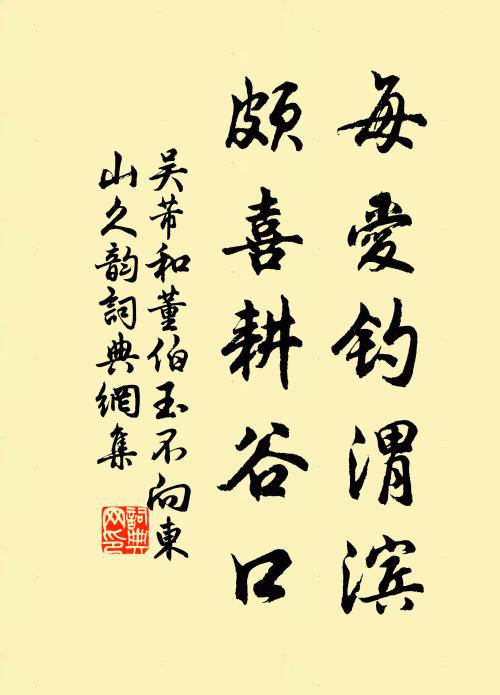 每愛钓渭滨
颇喜耕谷口
吴芾和董伯玉不向東
山久韵詞典網集
詞典网印